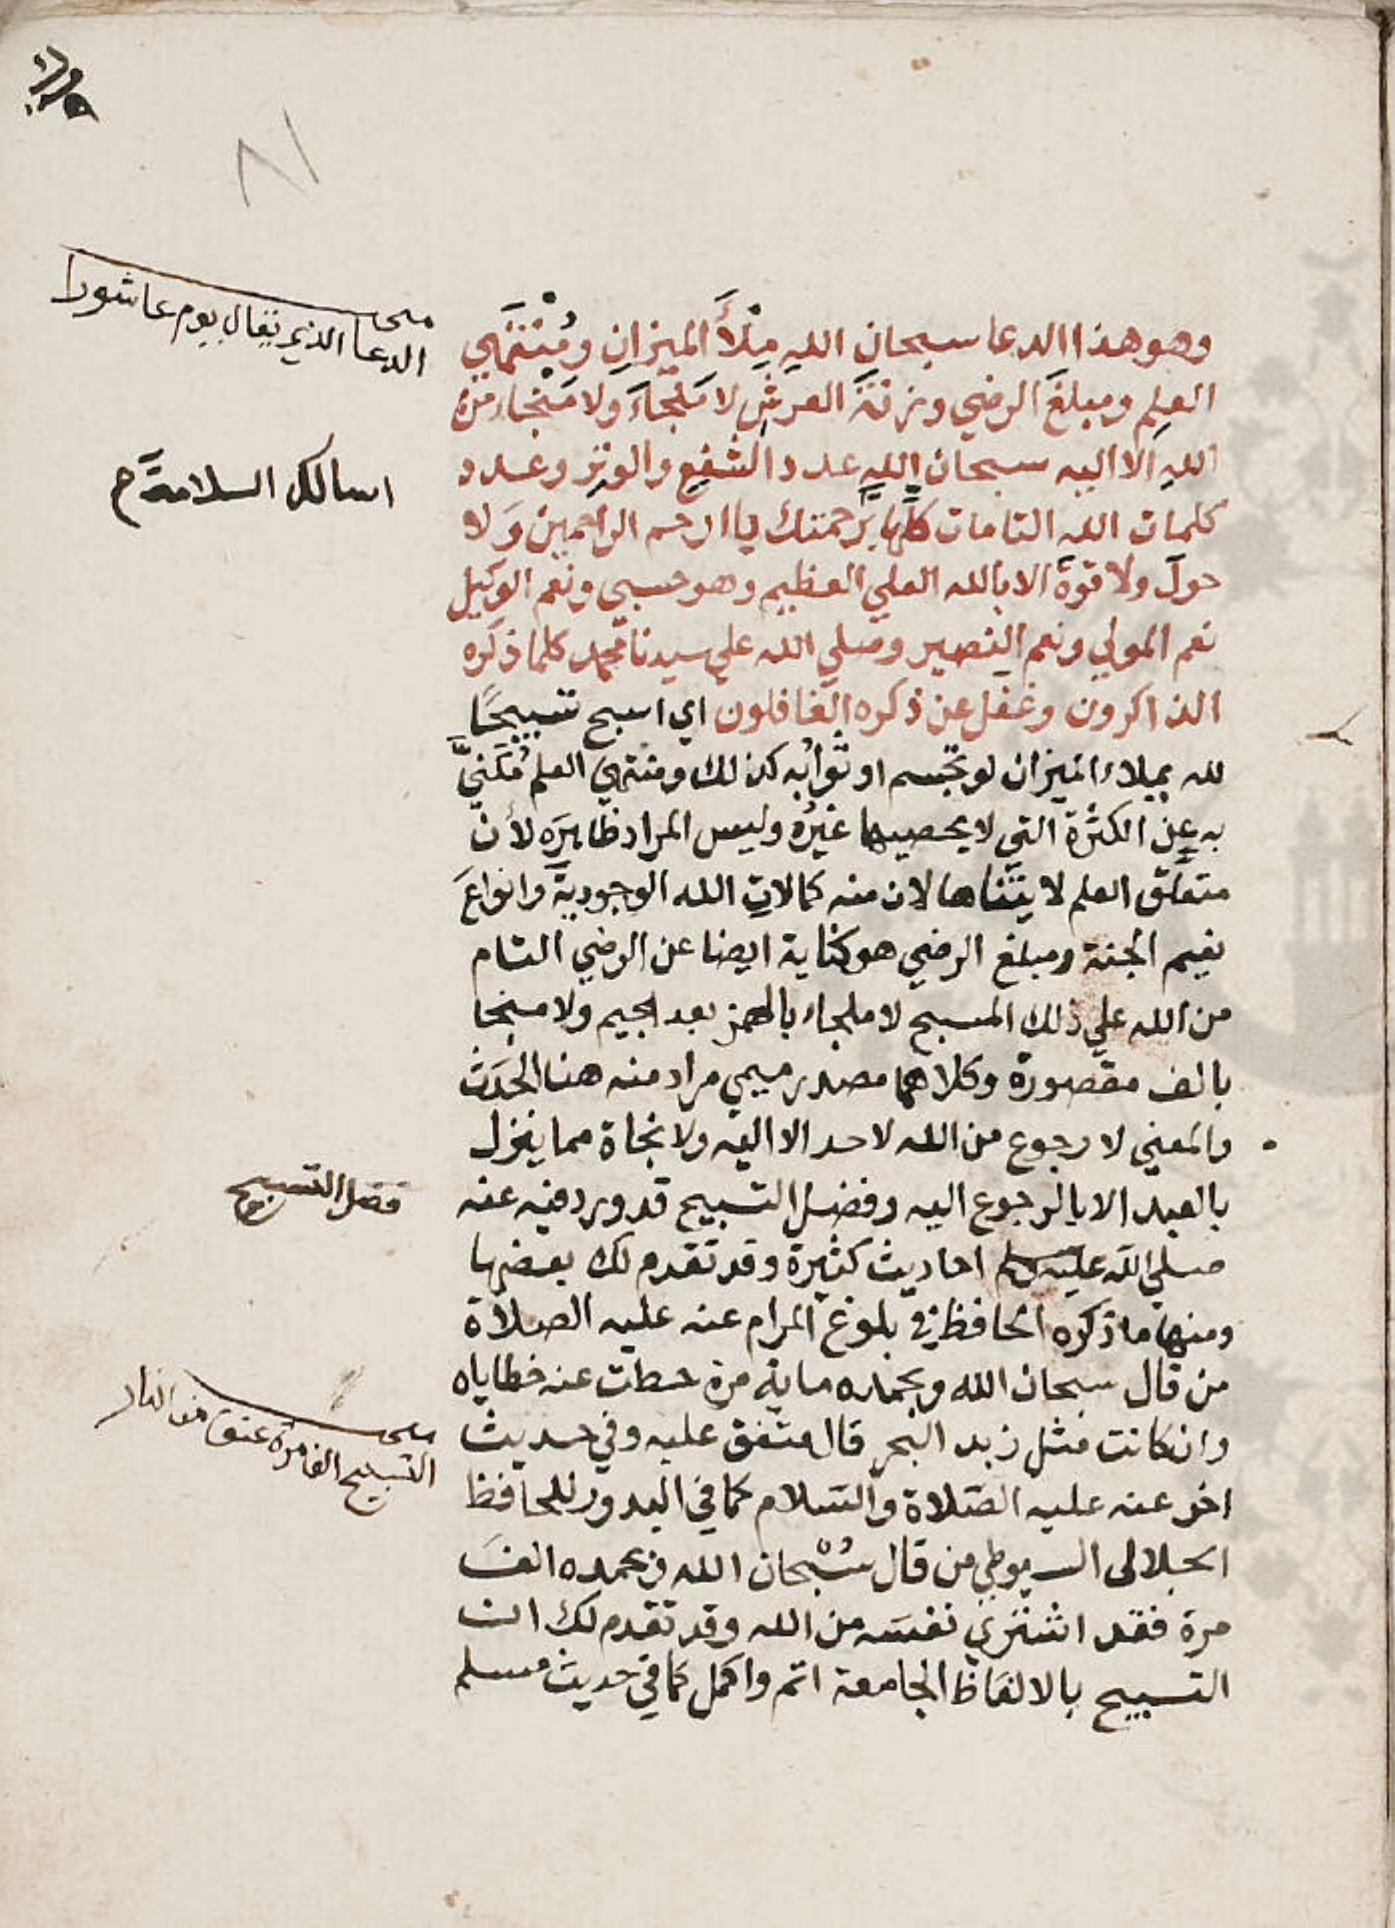 وهو هذا الدعا سبحان الله مِلْأَ الميزان ومُنْتَهَي
العلم ومبلغَ الرضي وزنَةَ العرشِ لا مَلْجَاءَ ولا مَنْجَاء من
اللهِ الا اليه سبحان اللهِ عدد الشفع والوتر وعدد
كلمات الله التامات كلِّها برَحمتك يا ارحم الراحمين وَلا
حولَ ولا قوةَ الا بالله العلي العظيم وهو حسبي ونعم الوكيل
نعم المولي ونعم النصير وصلي الله علي سيدنا محمد كلما ذكره
الذاكرون وغفل عن ذكره الغافلون اي اسبح تسبيحًا
لله بملاء الميزان لو تجسم او ثوابُه كذلك ومنتهي العلم مُكَنيًّ
به عن الكثرة التي لا يحصيها غيرُه وليس المراد ظاهرَه لأن
متعلَّق العلم لا يتَناها لان منه كمالاتِ الله الوجوديةَ وانواعَ
نعيم الجنة ومبلغ الرضي هو كناية ايضا عن الرضي التام
من الله علي ذلك المسبح لا ملجاء بالهمز بعد الجيم ولا منجا
بالف مقصورة وكلاهما مصدر ميمي مراد منه هنا الحدَث
والمعني لا رجوع من الله لاحد الا اليه ولا نجاة مما ينزل
بالعبد الا بالرجوع اليه وفضل التسبيح قد ورد فيه عنه
صلي الله عليه وسلم احاديث كثيرة وقد تقدم لك بعضها
ومنها ما ذكره الحافظ في بلوغ المرام عنه عليه الصلاة
من قال سبحان الله وبحمده ماية مرة حطت عنه خطاياه
وان كانت مثل زبد البحر قال متفق عليه وفي حديث
اخر عنه عليه الصلاة والسلام كما في البدور للحافظ
الجلالي السيوطي من قال سُبْحان الله وبحمده الف
مرة فقد اشتري نفسَه من الله وقد تقدم لك ان
التسبيح بالالفاظ الجامعة اتم واكمل كما في حديث مسلم
الدعا الذي يقال يوم عاشورا
اسالك السلامة
فضل التسبيح
التسبيح الف مرة عتق من النار